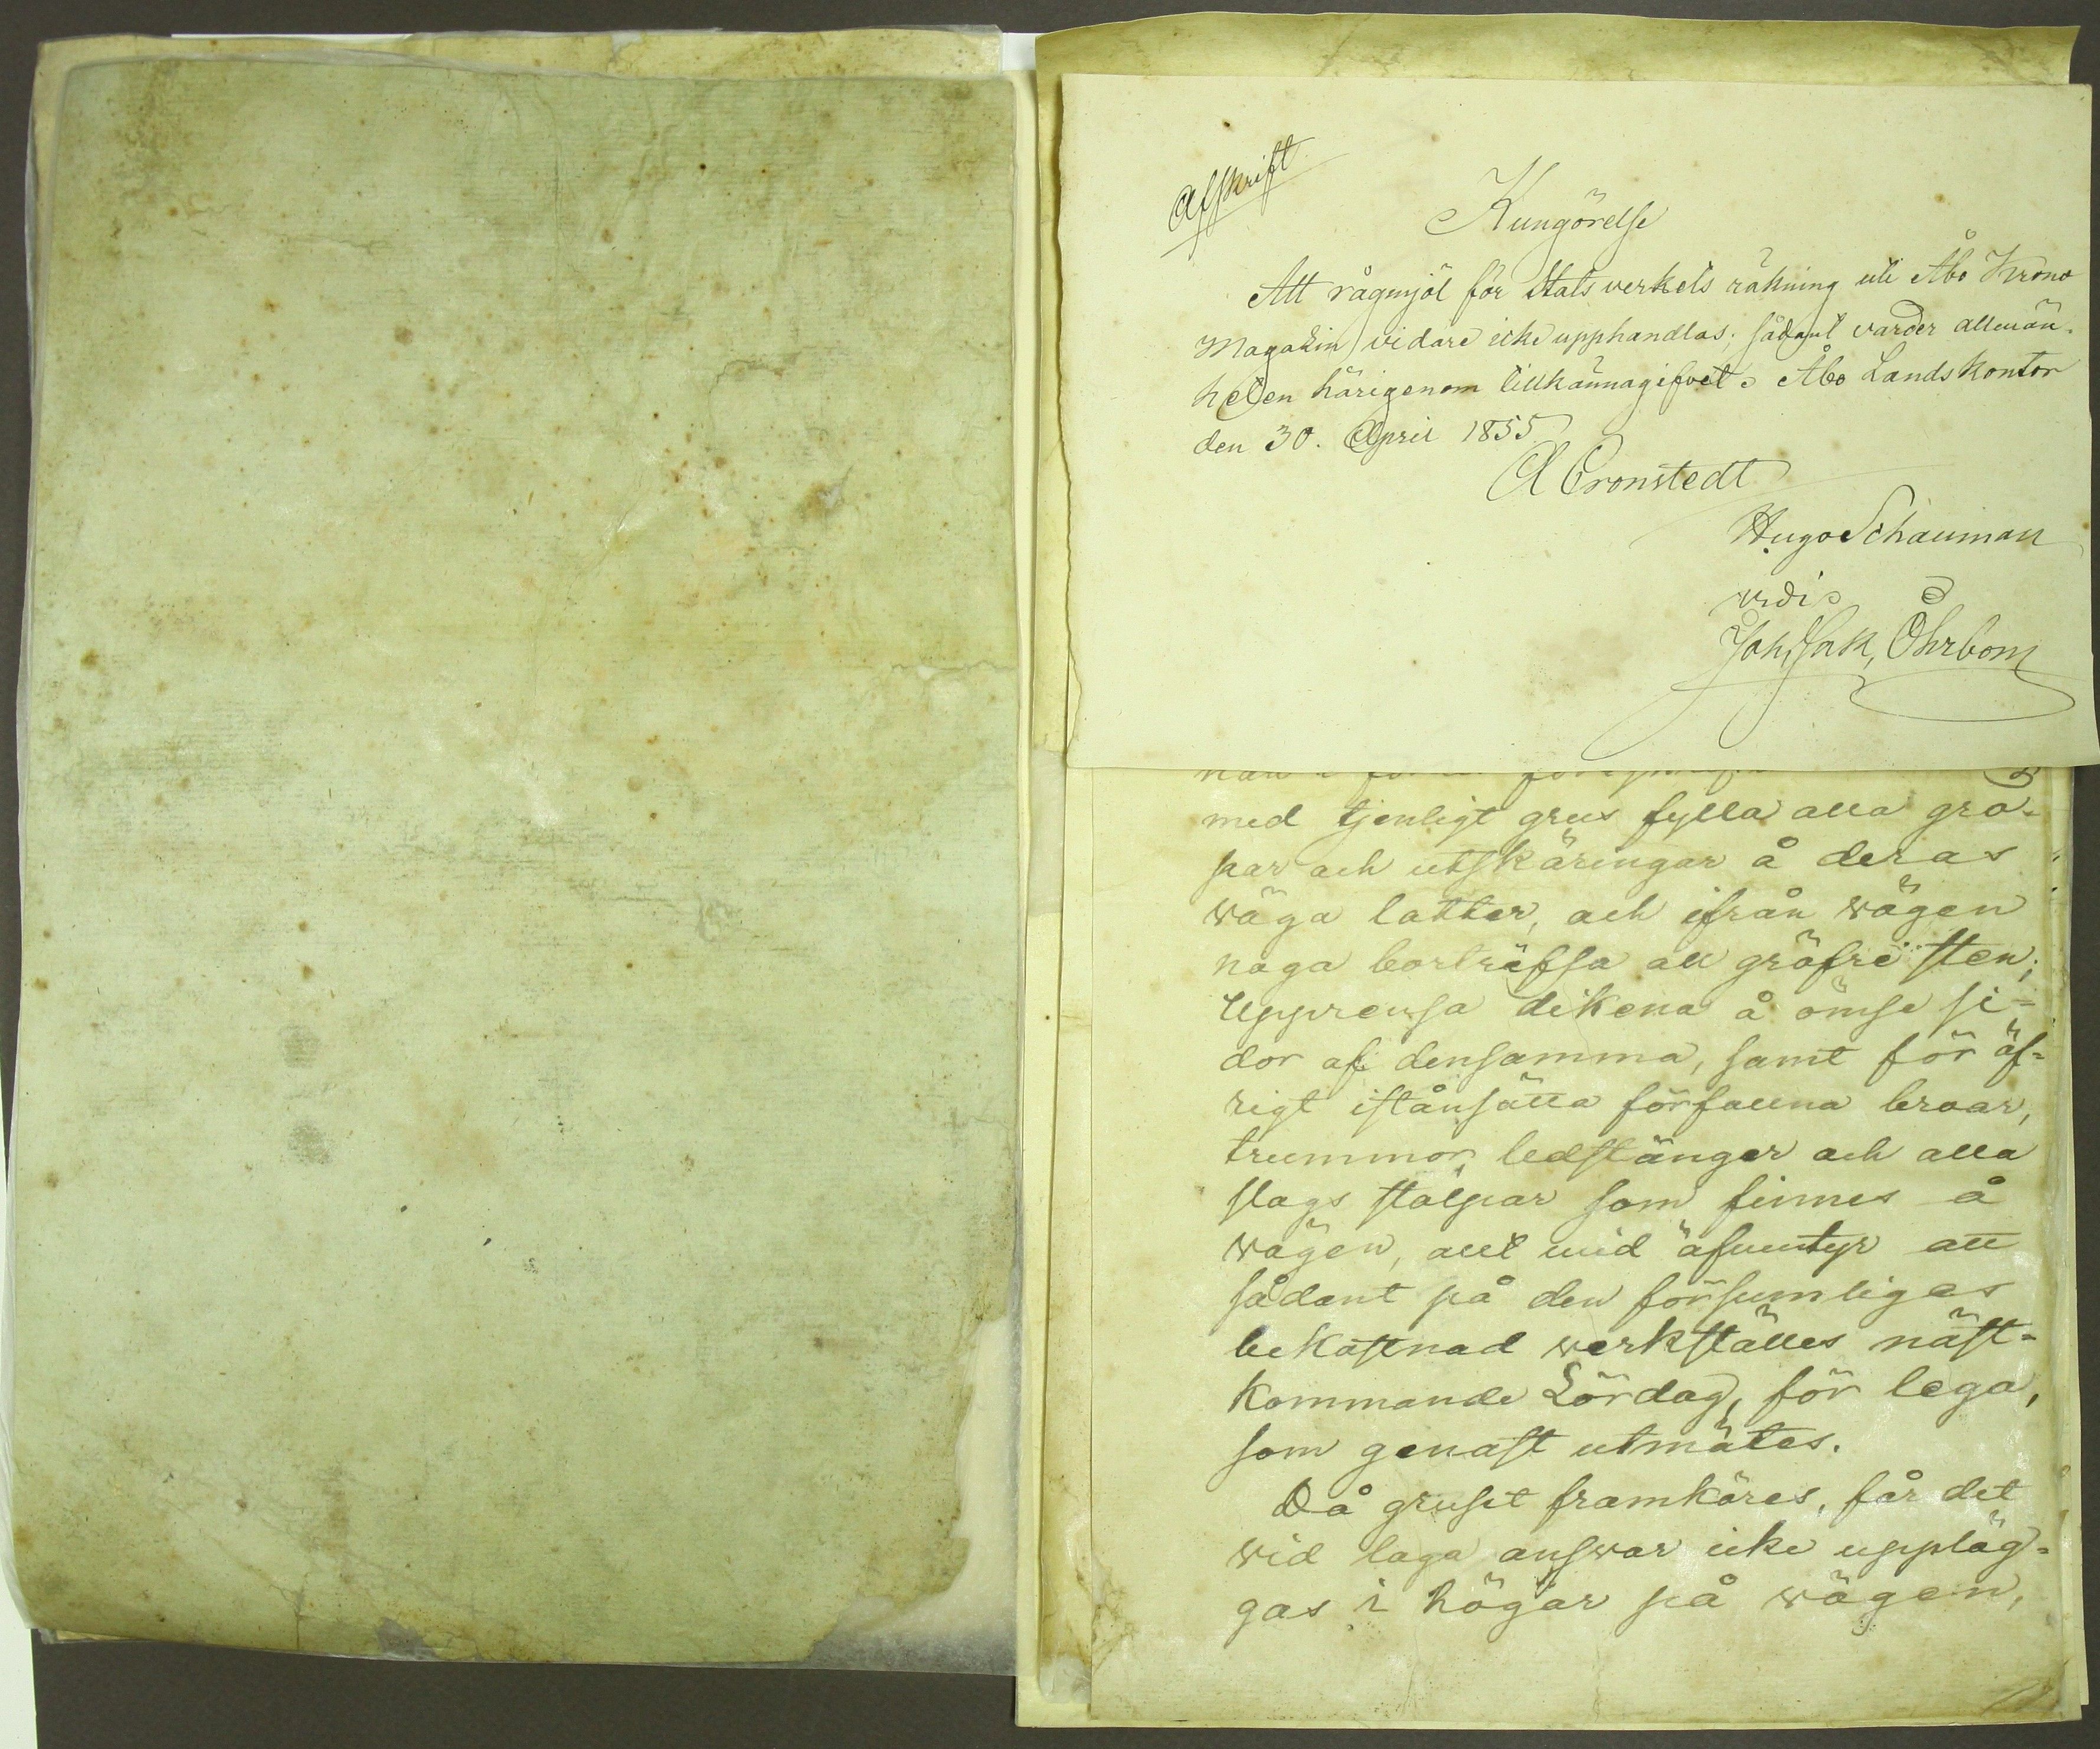 Afskrift
Kungörelse
Att rågmjöl för Statsverkets räkning uti Åbo Krono
Magazin vidare icke upphandlas; sådant varder allmän-
heten härigenom tillkännagifvet. Åbo Landskontor
den 30. April 1855.
A Cronstedt
Hugo Schauman
vidi:
Joh, Jak, Öhrbom
med tjenligt grus fylla alla gro-
par och utskäringar å deras
väga lotter, och ifrån vägen
noga borträfsa all gröfre sten;
Upprensa dikena å ömse si-
dor af densamma, samt för öf-
rigt iståndsätta förfallna broar,
trummor, ledstänger och alla
slags stolpar som finnes å
vägen, allt vid äfventyr att
sådant på den försumliges
bekostnad verkställes näst-
kommande Lördag, för lega,
som genast utmätes.
Då gruset framköres, får det
vid laga answar icke uppläg-
gas i högar på vägen,